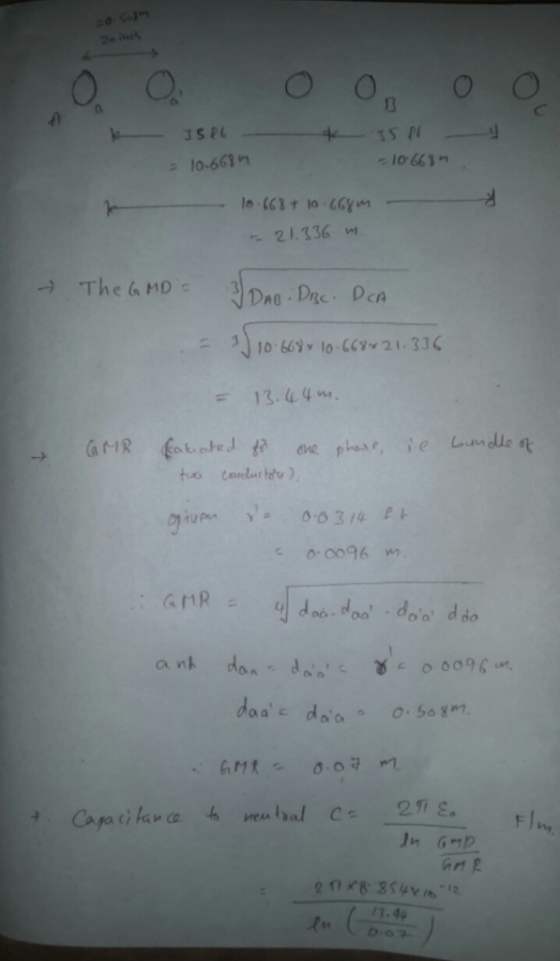 = 0.508m
20 inch
A a a' B C
35 ft 35 ft
= 10.668 m = 10.668 m
10.668 + 10.668 m
= 21.336 m.
→ The GMD = ∛(DAB . DBC . DCA)
= ∛(10.668 x 10.668 x 21.336)
= 13.44 m.
→ GMR for one phase, i.e bundle of
two conductors).
given r' = 0.0314 ft
= 0.0096 m
∴ GMR = ∜(daa . daa' . da'a' . da'a)
daa = da'a' = r' = 0.0096 m.
daa' = da'a = 0.508m.
∴ GMR = 0.07 m
Capacitance to neutral C = 2π ε₀ / ln GMD/GMR F/m.
= 2π x 8.854 x 10⁻¹² / ln (13.44/0.07)